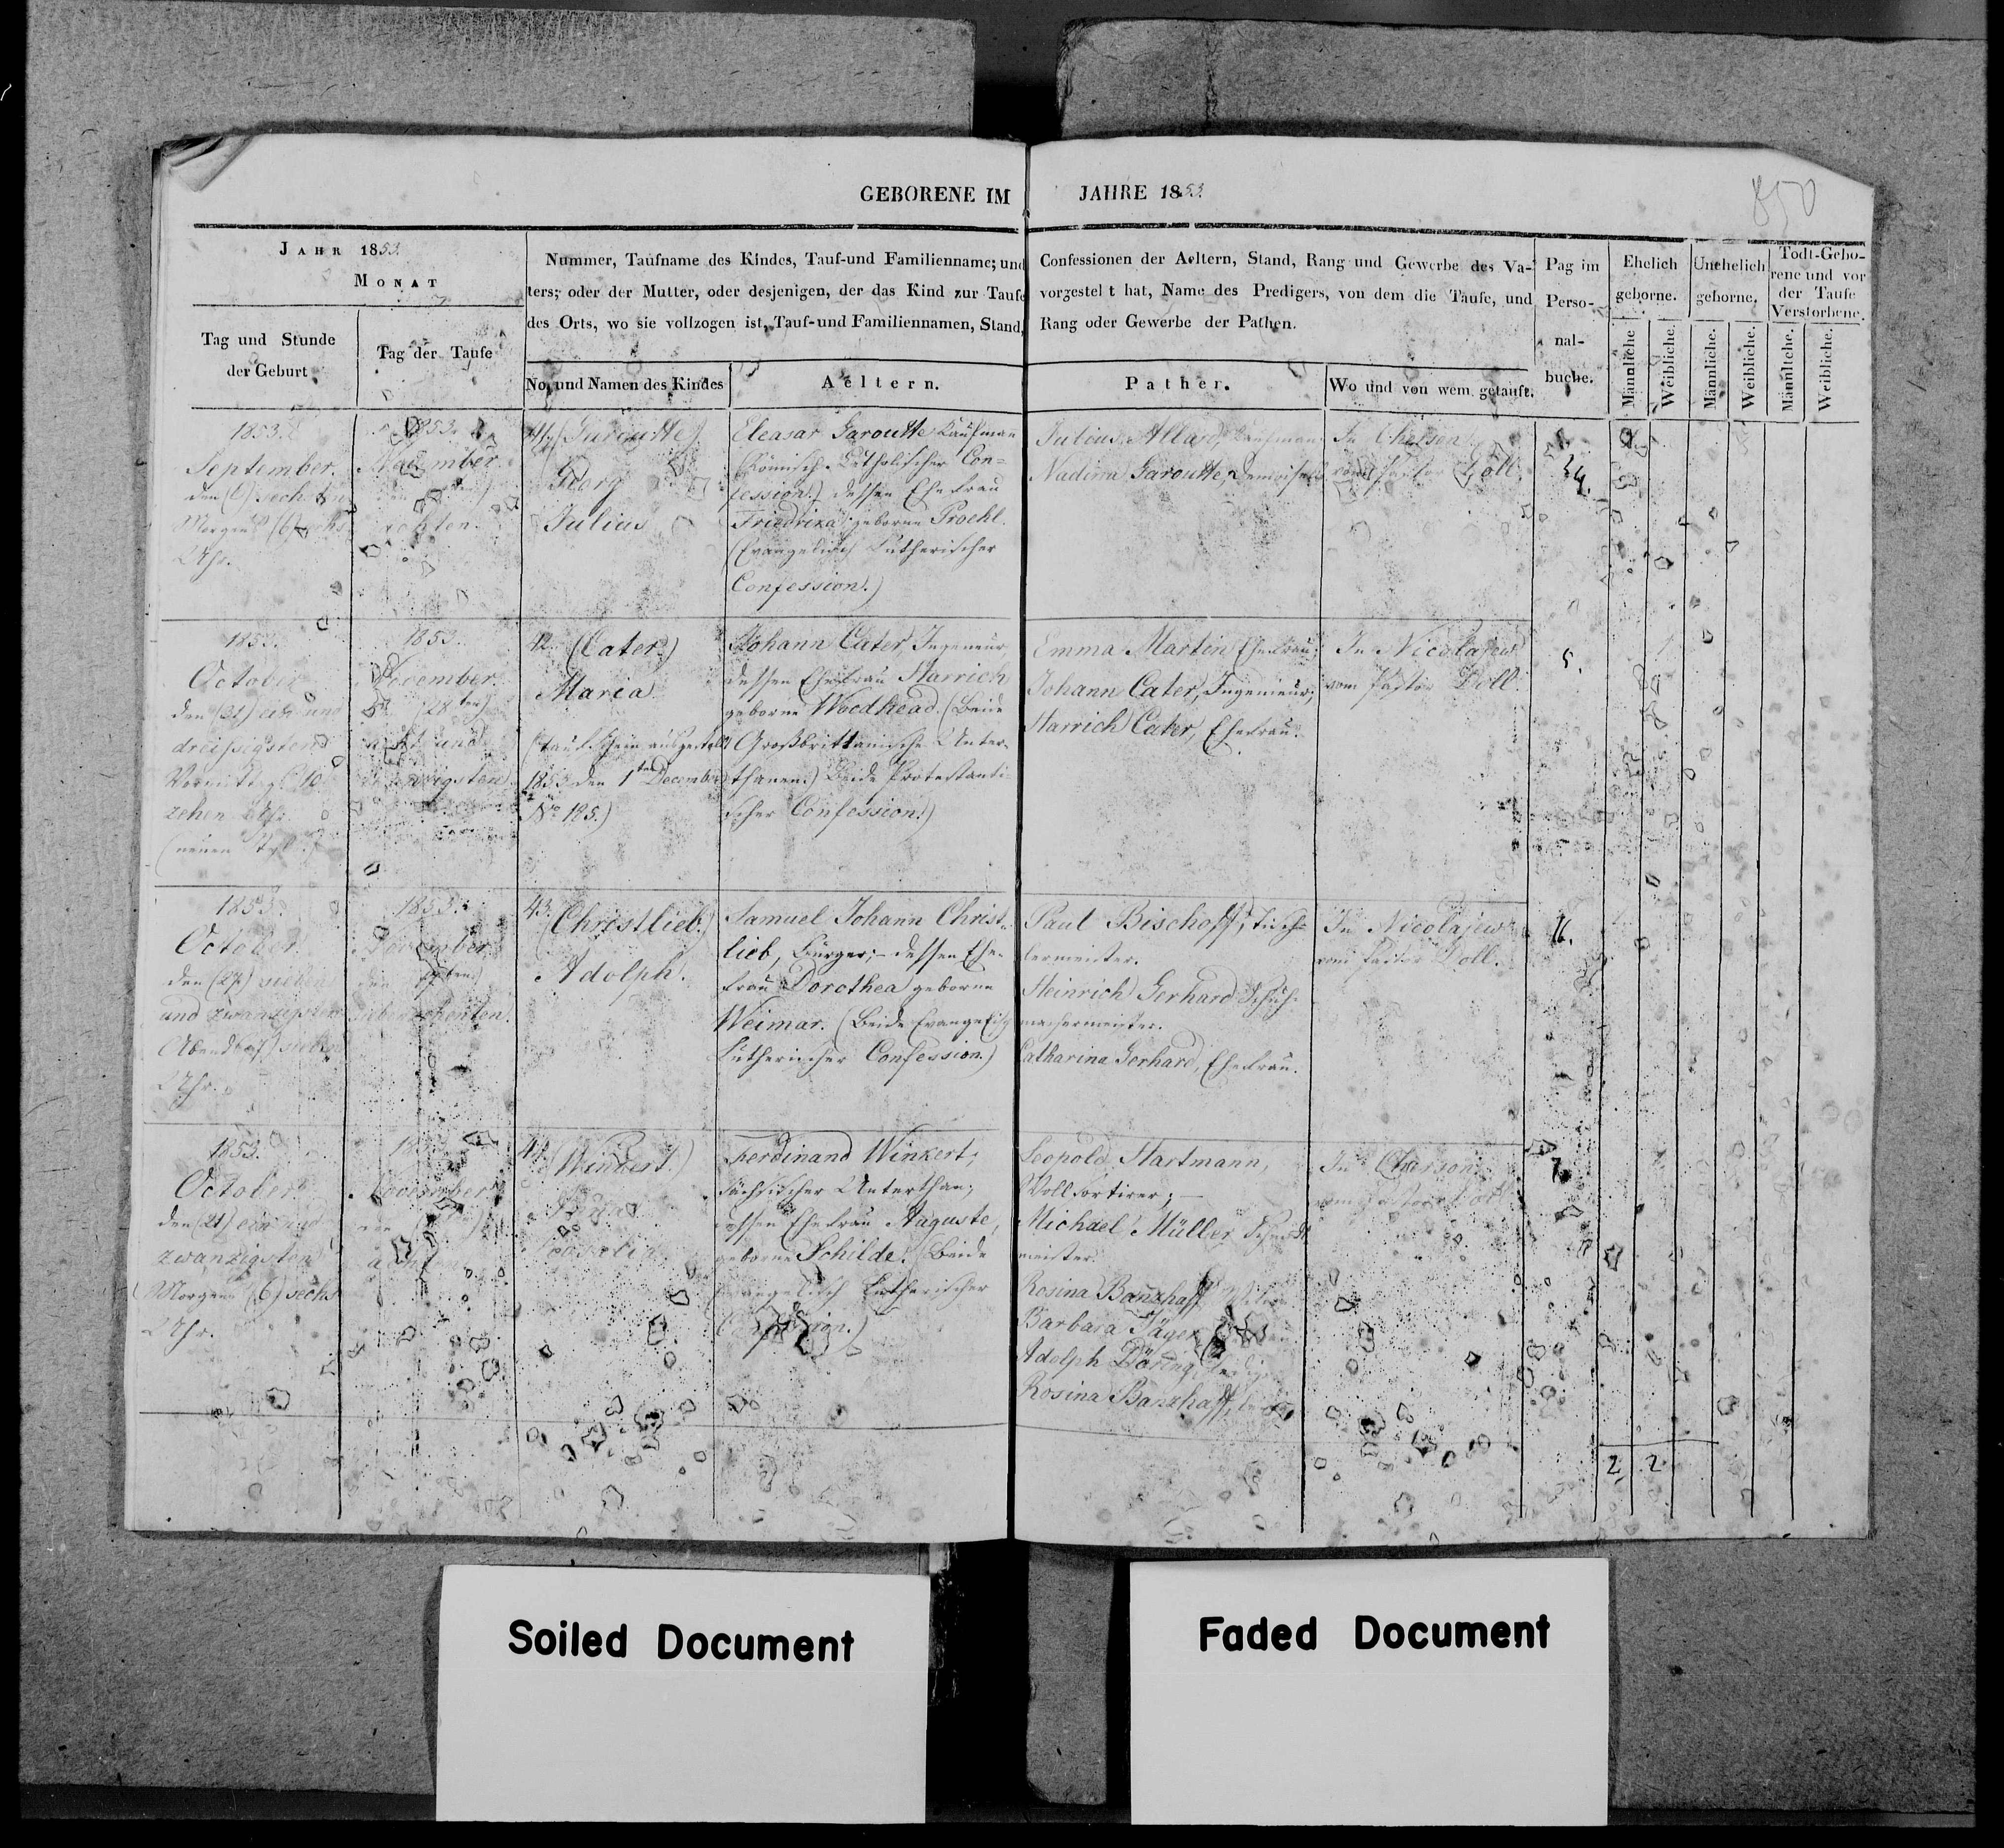 GEBORENE IM JAHRE 1853.
850
JAHR 1853.
MONAT
Tag und Stunde
der Geburt
Tag der Taufe
Nummer, Taufname des Kindes, Tauf-und Familienname; und
ters; oder der Mutter, oder desjenigen, der das Kind zur Taufe
des Orts, wo sie vollzogen ist, Tauf-und Familiennamen, Stand,
No. und Namen des Kindes
Aeltern.
Confessionen der Aeltern, Stand, Rang und Gewerbe des Va-
vorgestelt hat, Name des Predigers, von dem die Taufe, und
Rang oder Gewerbe der Pathen.
Pather.
Wo und von wem getauft.
Pag im
Perso-
nal-
buche.
Ehelich
geborne.
Unehelich
geborne.
Todt-Gebo-
rene und vor
der Taufe
Verstorbene.
Männliche
Weibliche.
Männliche.
Weibliche.
Männliche.
Weibliche.
1853.
September.
den (6) sechsten
Morgens (6) sechs
Uhr.
1853.
November
achten.
Georg
Julius
Eleasar Garoutte Kaufman
(Römisch-Katholischer Con=
fession.) dessen Ehefrau
Friedrika, geborne Proehl.
(Evangelisch Lutherischer
Confession.)
Julius Allard, Kaufman
Nadina Garoutte, Demoisell
In Cherson
vom Pastor Doll.
54.
1853.
October
den (31) ein und
dreissigsten
Vormittags 10
zehen Uhr.
(neuen Styl.)
1853.
November
(28ten)
acht und
zwanzigsten
42. (Cater.)
Maria
(Taufschein ausgestellt
1853 den 1ten December
No 185.)
Johann Cater, Ingeneur,
dessen Ehefrau Harrich
geborne Woodhead. (Beide
Großbrittanische Unter-
thanen.) Beide Protestanti-
scher Confession.)
Emma Martin Ehefrau;
Johann Cater, Ingenieur;
Harrich Cater, Ehefrau.
In Nicolajew
vom Pastor Doll.
5.
1853.
October.
den (27) sieben
und zwanzigsten
Abends (7) sieben
Uhr.
1853.
November
siebenzehnten.
43. (Christlieb.)
Adolph.
Samuel Johann Christ-
lieb, Bürger; dessen Ehe-
frau Dorothea geborne
Weimar. (Beide Evangelisch
Lutherischer Confession.)
Paul Bischoff, Tisch-
lermeister.
Heinrich Gerhard Schuh-
machermeister.
Catharina Gerhard, Ehefrau.
In Nicolajew
vom Pastor Doll.
1853.
October
den (21) ein und
zwanzigsten
Morgens (6) sechs
Uhr.
November
achten
44. (Winkert.)
Ferdinand Winkert,
Sächsischer Unterthan;
dessen Ehefrau Auguste,
geborne Schilde. (Beide
Evangelisch Lutherischer
Confession.)
Leopold Hartmann,
Wollsortirer;
Michael Müller Schmidt
meister.
Rosina Banzhaff
Barbara Jäger
Adolph Döring, ledig
Rosina Banzhaff, ledig
In Cherson
2 2
Soiled Document
Faded Document